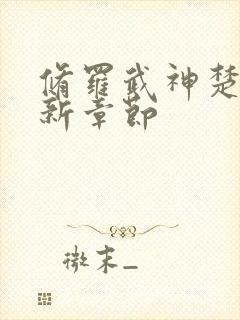 脩羅武神楚
新章節
微末_